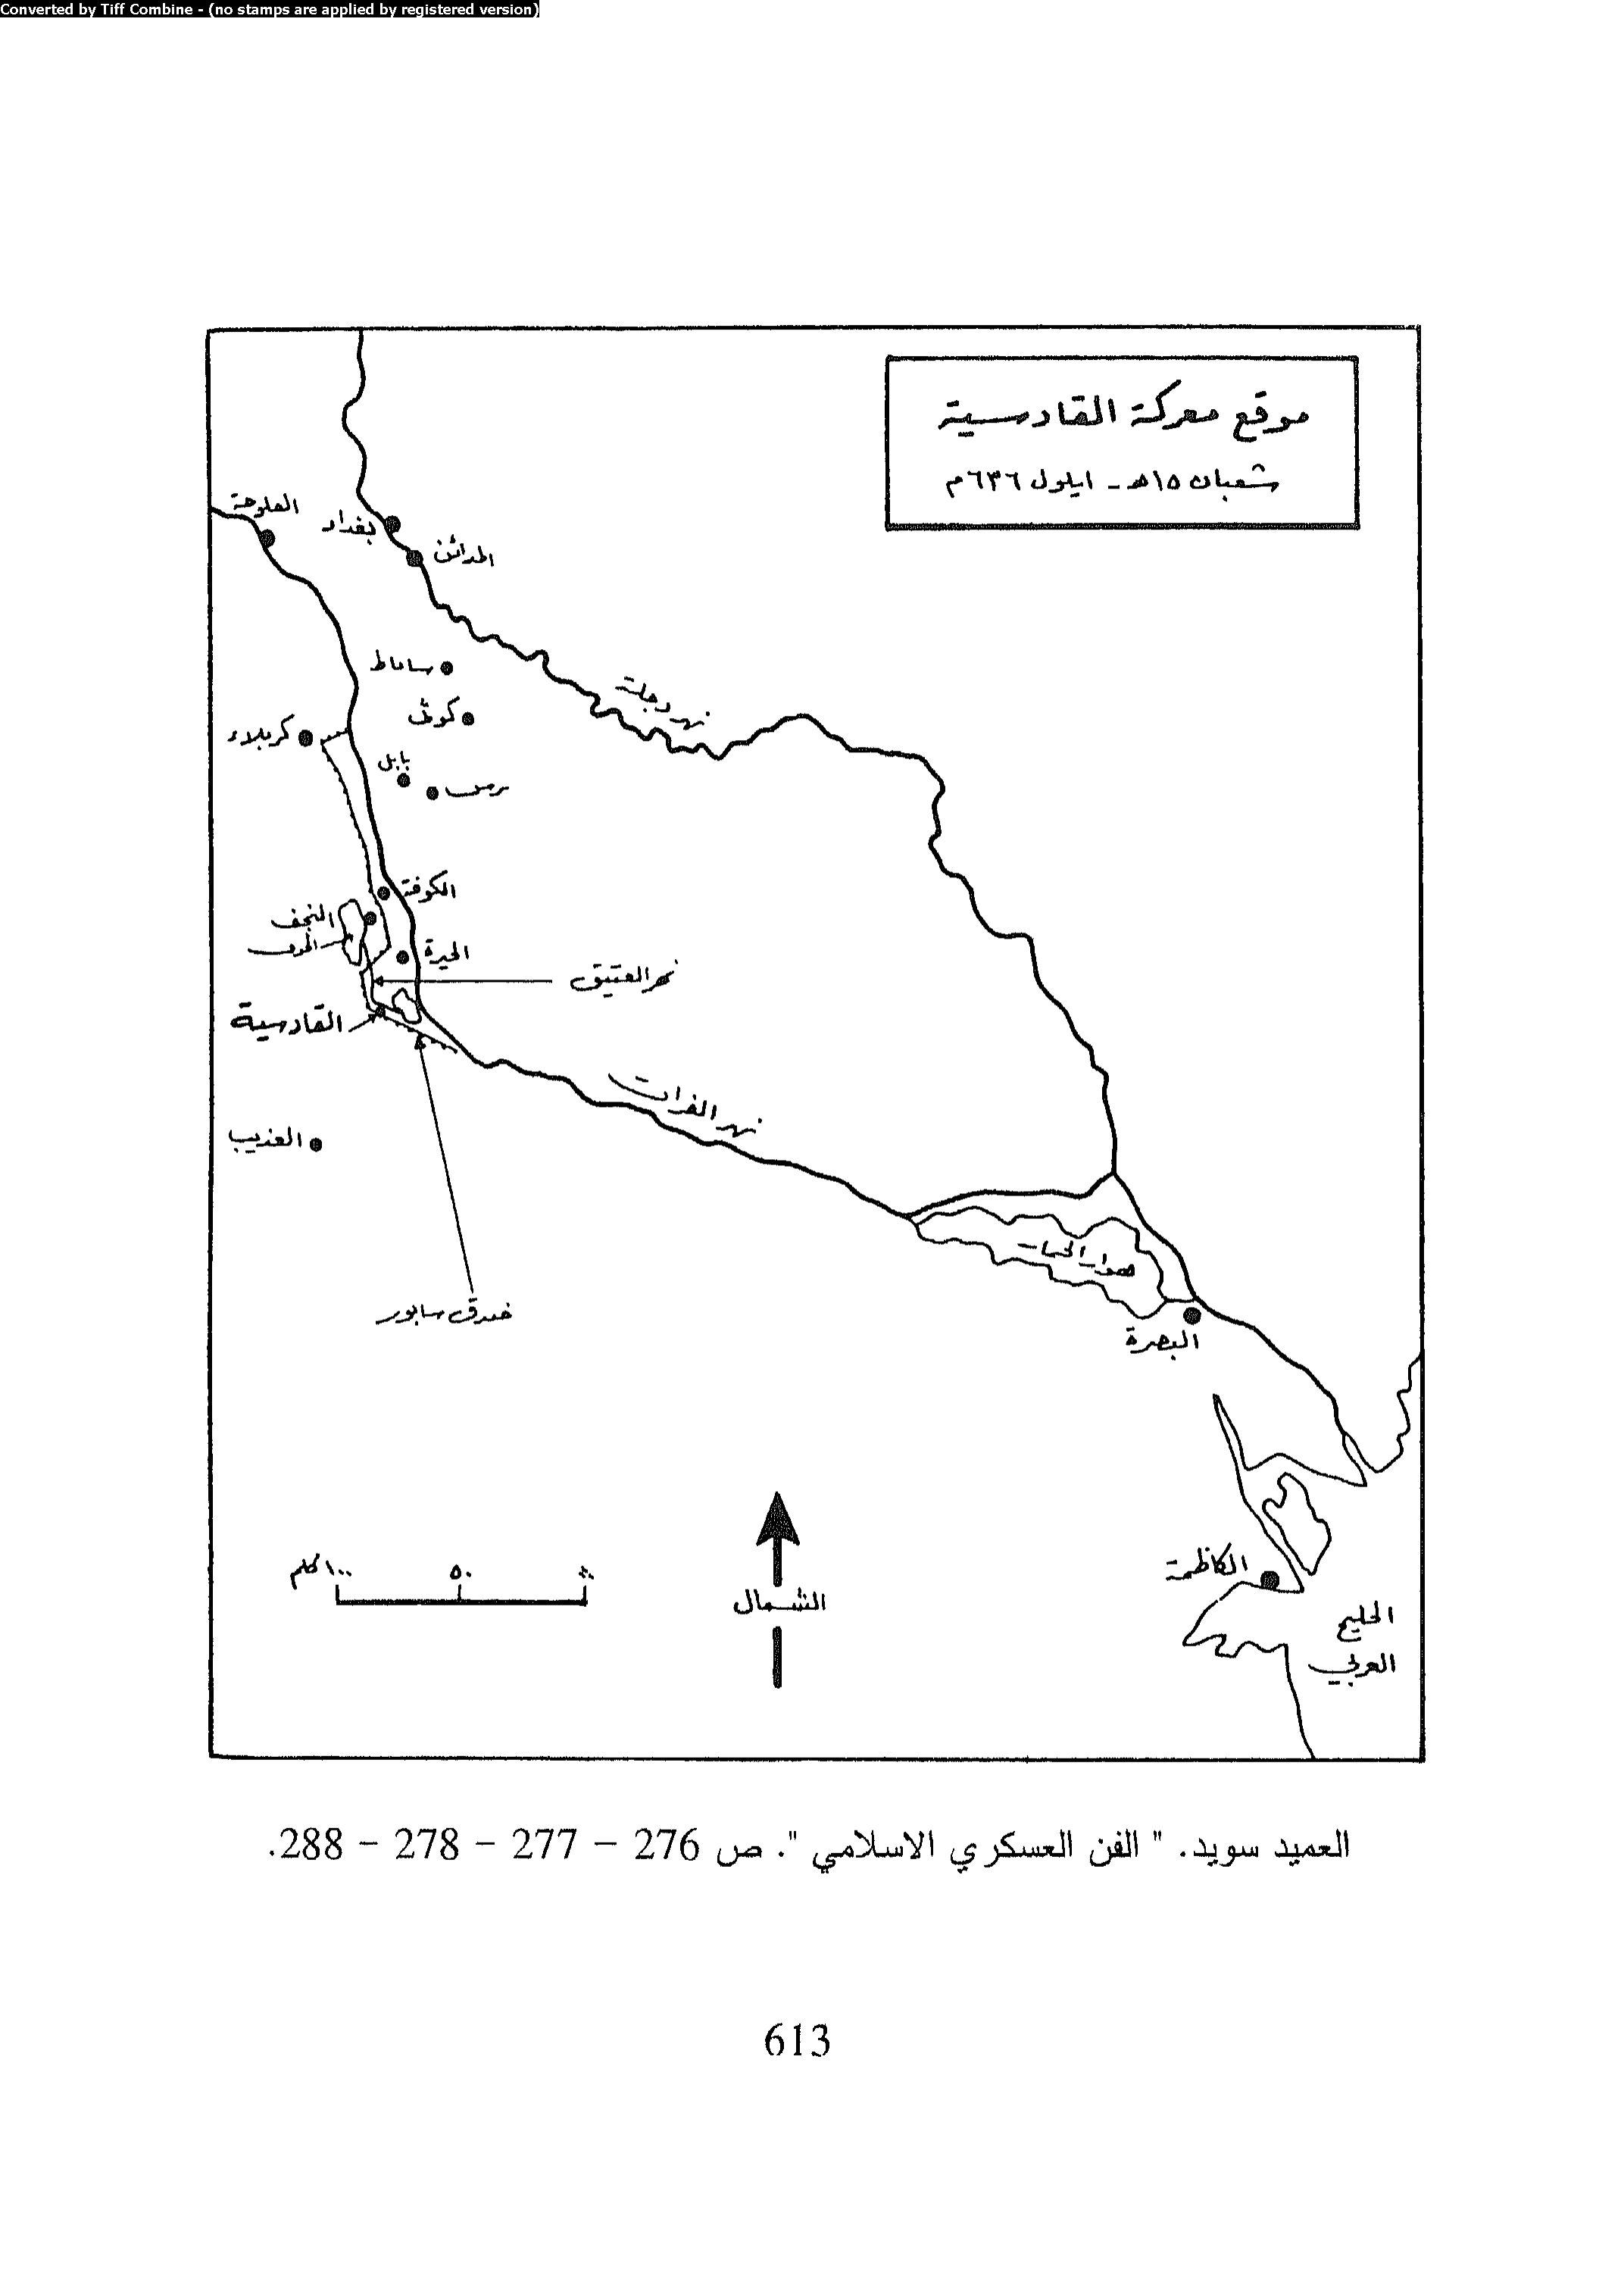 Converted by Tiff Combine - (no stamps are applied by registered version)
موقع معركة القادسية
شعبان ١٥هـ - ايلول ٦٣٦م
الفلوجة
بغداد
المدائن
ساباط
كوثى
نهر دجلة
كربلاء
بابل
برس
الكوفة
النجف
الجوف
الحيرة
نهر العتيق
القادسية
نهر الفرات
العذيب
هور الحمار
خندق سابور
البصرة
الكاظمة
١٠٠ كلم
٥٠
الشمال
الخليج
العربي
العميد سويد. " الفن العسكري الاسلامي ". ص 276 – 277 – 278 – 288.
613